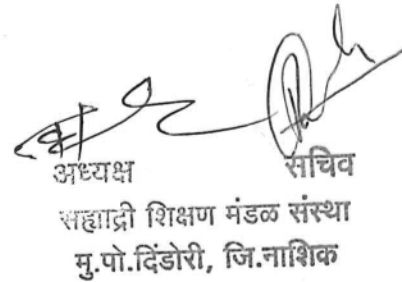 अध्यक्ष सचिव
सह्याद्री शिक्षण मंडळ संस्था
मु.पो.दिंडोरी, जि.नाशिक